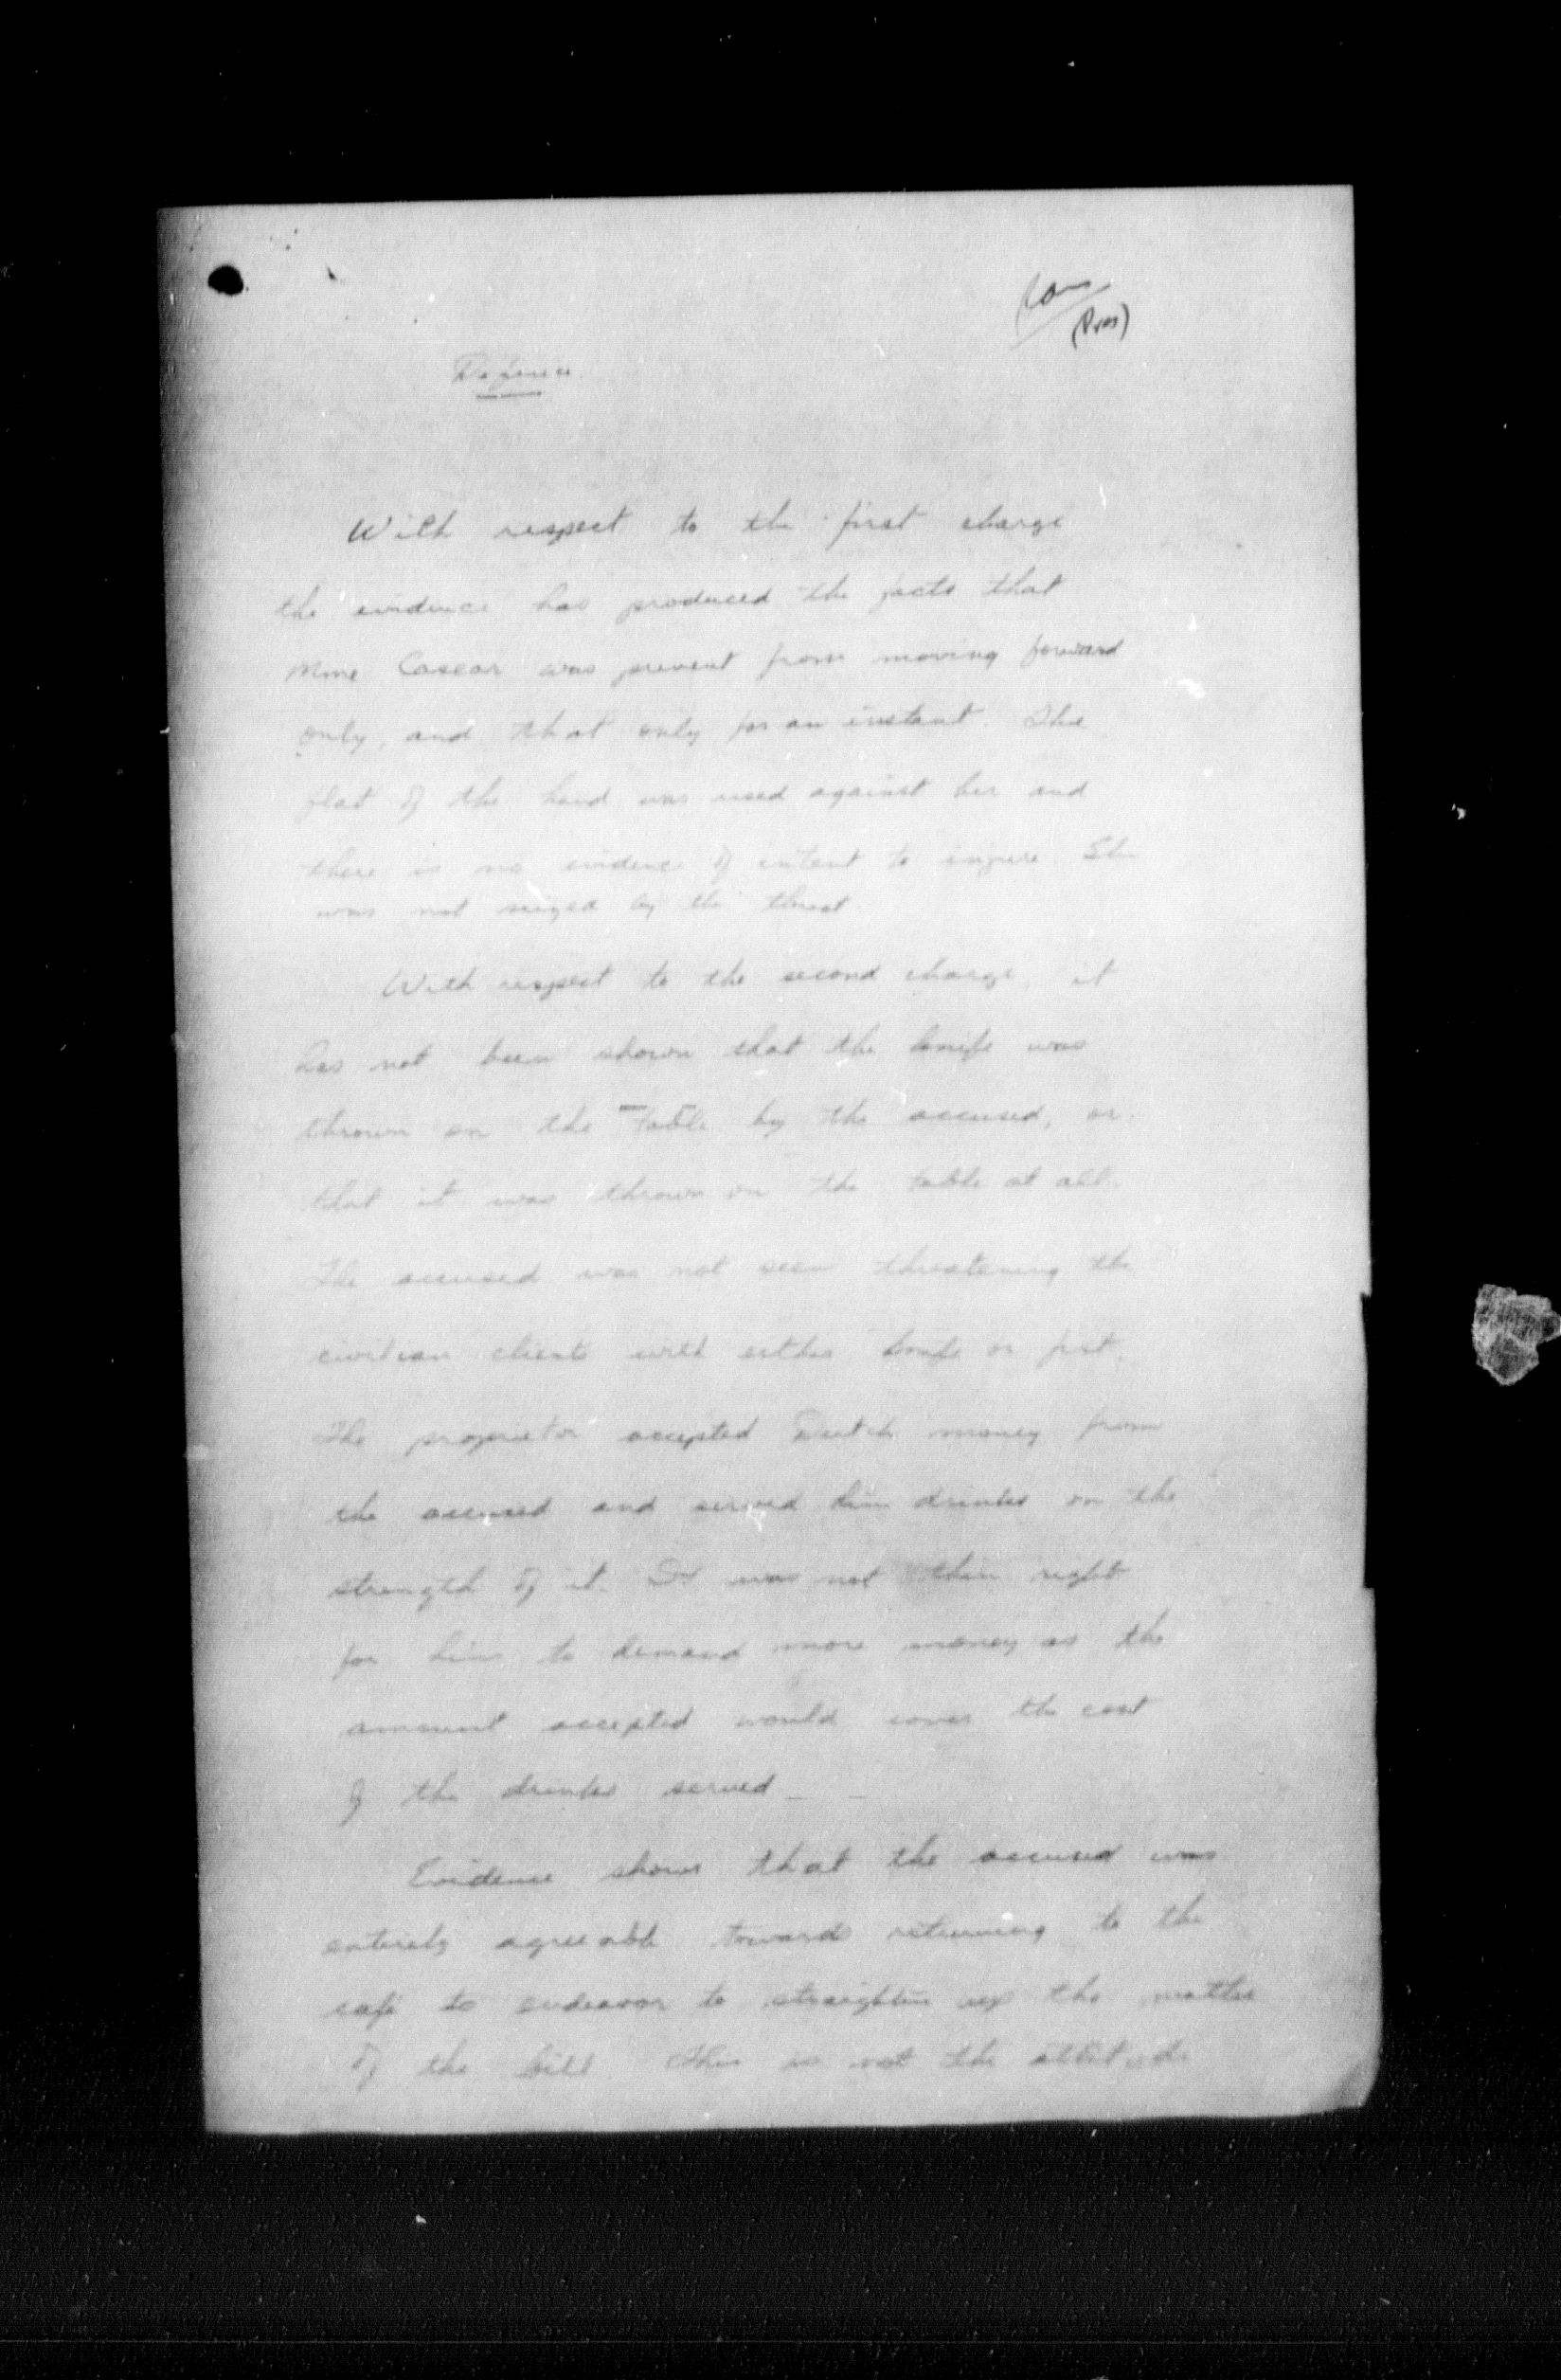 (Pres)
Defence.
With respect to the first charge
the evidence has produced the facts that
Mme Casear was prevent from moving forward
only, and that only for an instant. The
flat of the hand was used against her and
there is no evidence of intent to injure. She
was not seized by the throat
With respect to the second charge, it
has not been shown that the knife was
thrown on the table by the accused, or
that it was thrown on the table at all.
The accused was not seen threatening the
civilian clients with either knife or fist.
The proprietor accepted Dutch money from
the accused and served him drinks on the
strength of it. It was not then right
for him to demand more money as the
amount accepted would cover the cost
of the drinks served
Evidence shows that the accused was
entirely agreeable towards returning to the
café to endeavor to straighten up the matter
of the bill. This is not the attitude